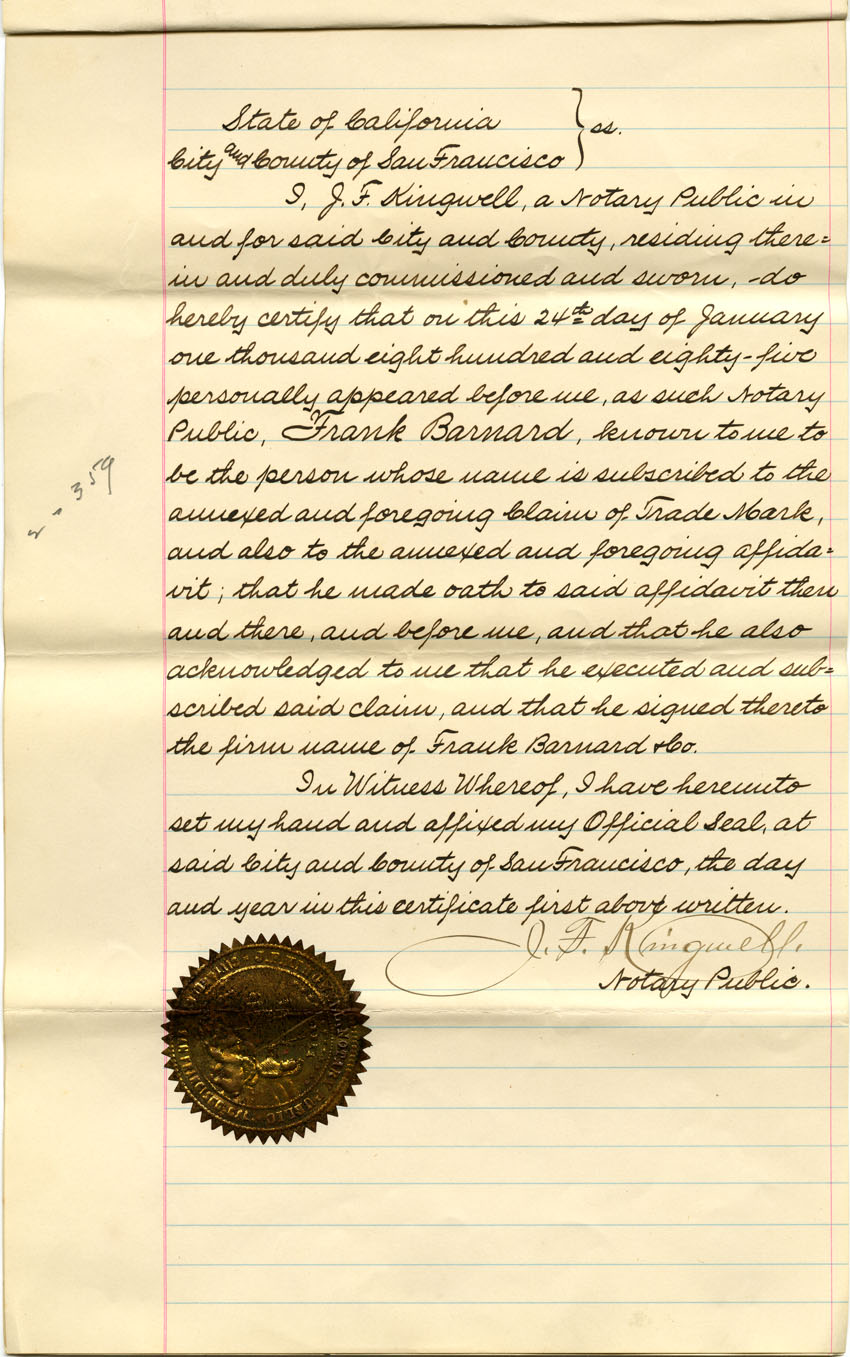 State of California } ss.
City and County of San Francisco
I, J. F. Kingwell, a Notary Public in
and for said City and County, residing there=
in and duly commissioned and sworn, -do
hereby certify that on this 24th day of January
one thousand eight hundred and eighty-five
personally appeared before me, as such Notary
Public, Frank Barnard, known to me to
be the person whose name is subscribed to the
annexed and foregoing Claim of Trade Mark,
and also to the annexed and foregoing affida=
vit; that he made oath to said affidavit then
and there, and before me, and that he also
acknowledged to me that he executed and sub=
scribed said claim, and that he signed thereto
the firm name of Frank Barnard & Co.
In Witness Whereof, I have hereunto
set my hand and affixed my Official Seal, at
said City and County of San Francisco, the day
and year in this certificate first above written.
J. F. Kingwell.
Notary Public.
359
NOTARY PUBLIC